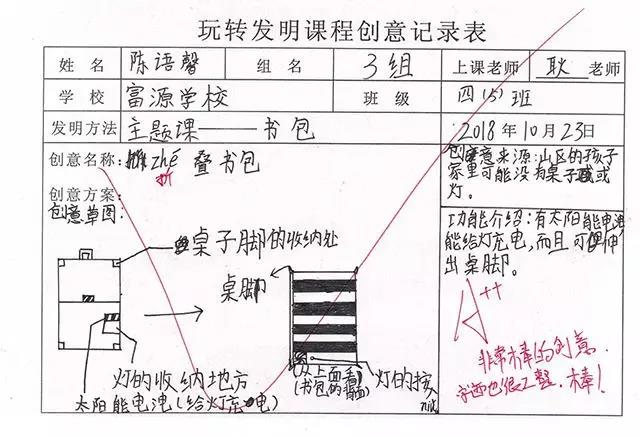 玩转发明课程创意记录表
姓 名 陈语馨 组 名 3组 上课老师 耿 老师
学 校 富源学校 班 级 四(5)班
发明方法 主题课——书包 2018年10月23日
创意名称: zhé 叠书包
折
创意方案:
创意草图:
桌子脚的收纳处
桌脚
灯的收纳地方
太阳能电池(给灯充电)
(从上面看)
(书包的背面)
灯的按
创意来源:山区的孩子
家里可能没有桌子或
灯.
功能介绍:有太阳能电池
能给灯充电,而且可伸
出桌脚。
A++
非常棒的创意.
字画也很工整.棒!